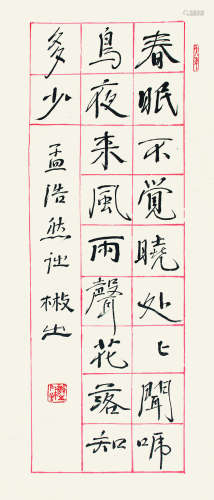 春眠不覺曉处匕聞啼
鳥夜来風雨聲花落知
多少
孟浩然诗